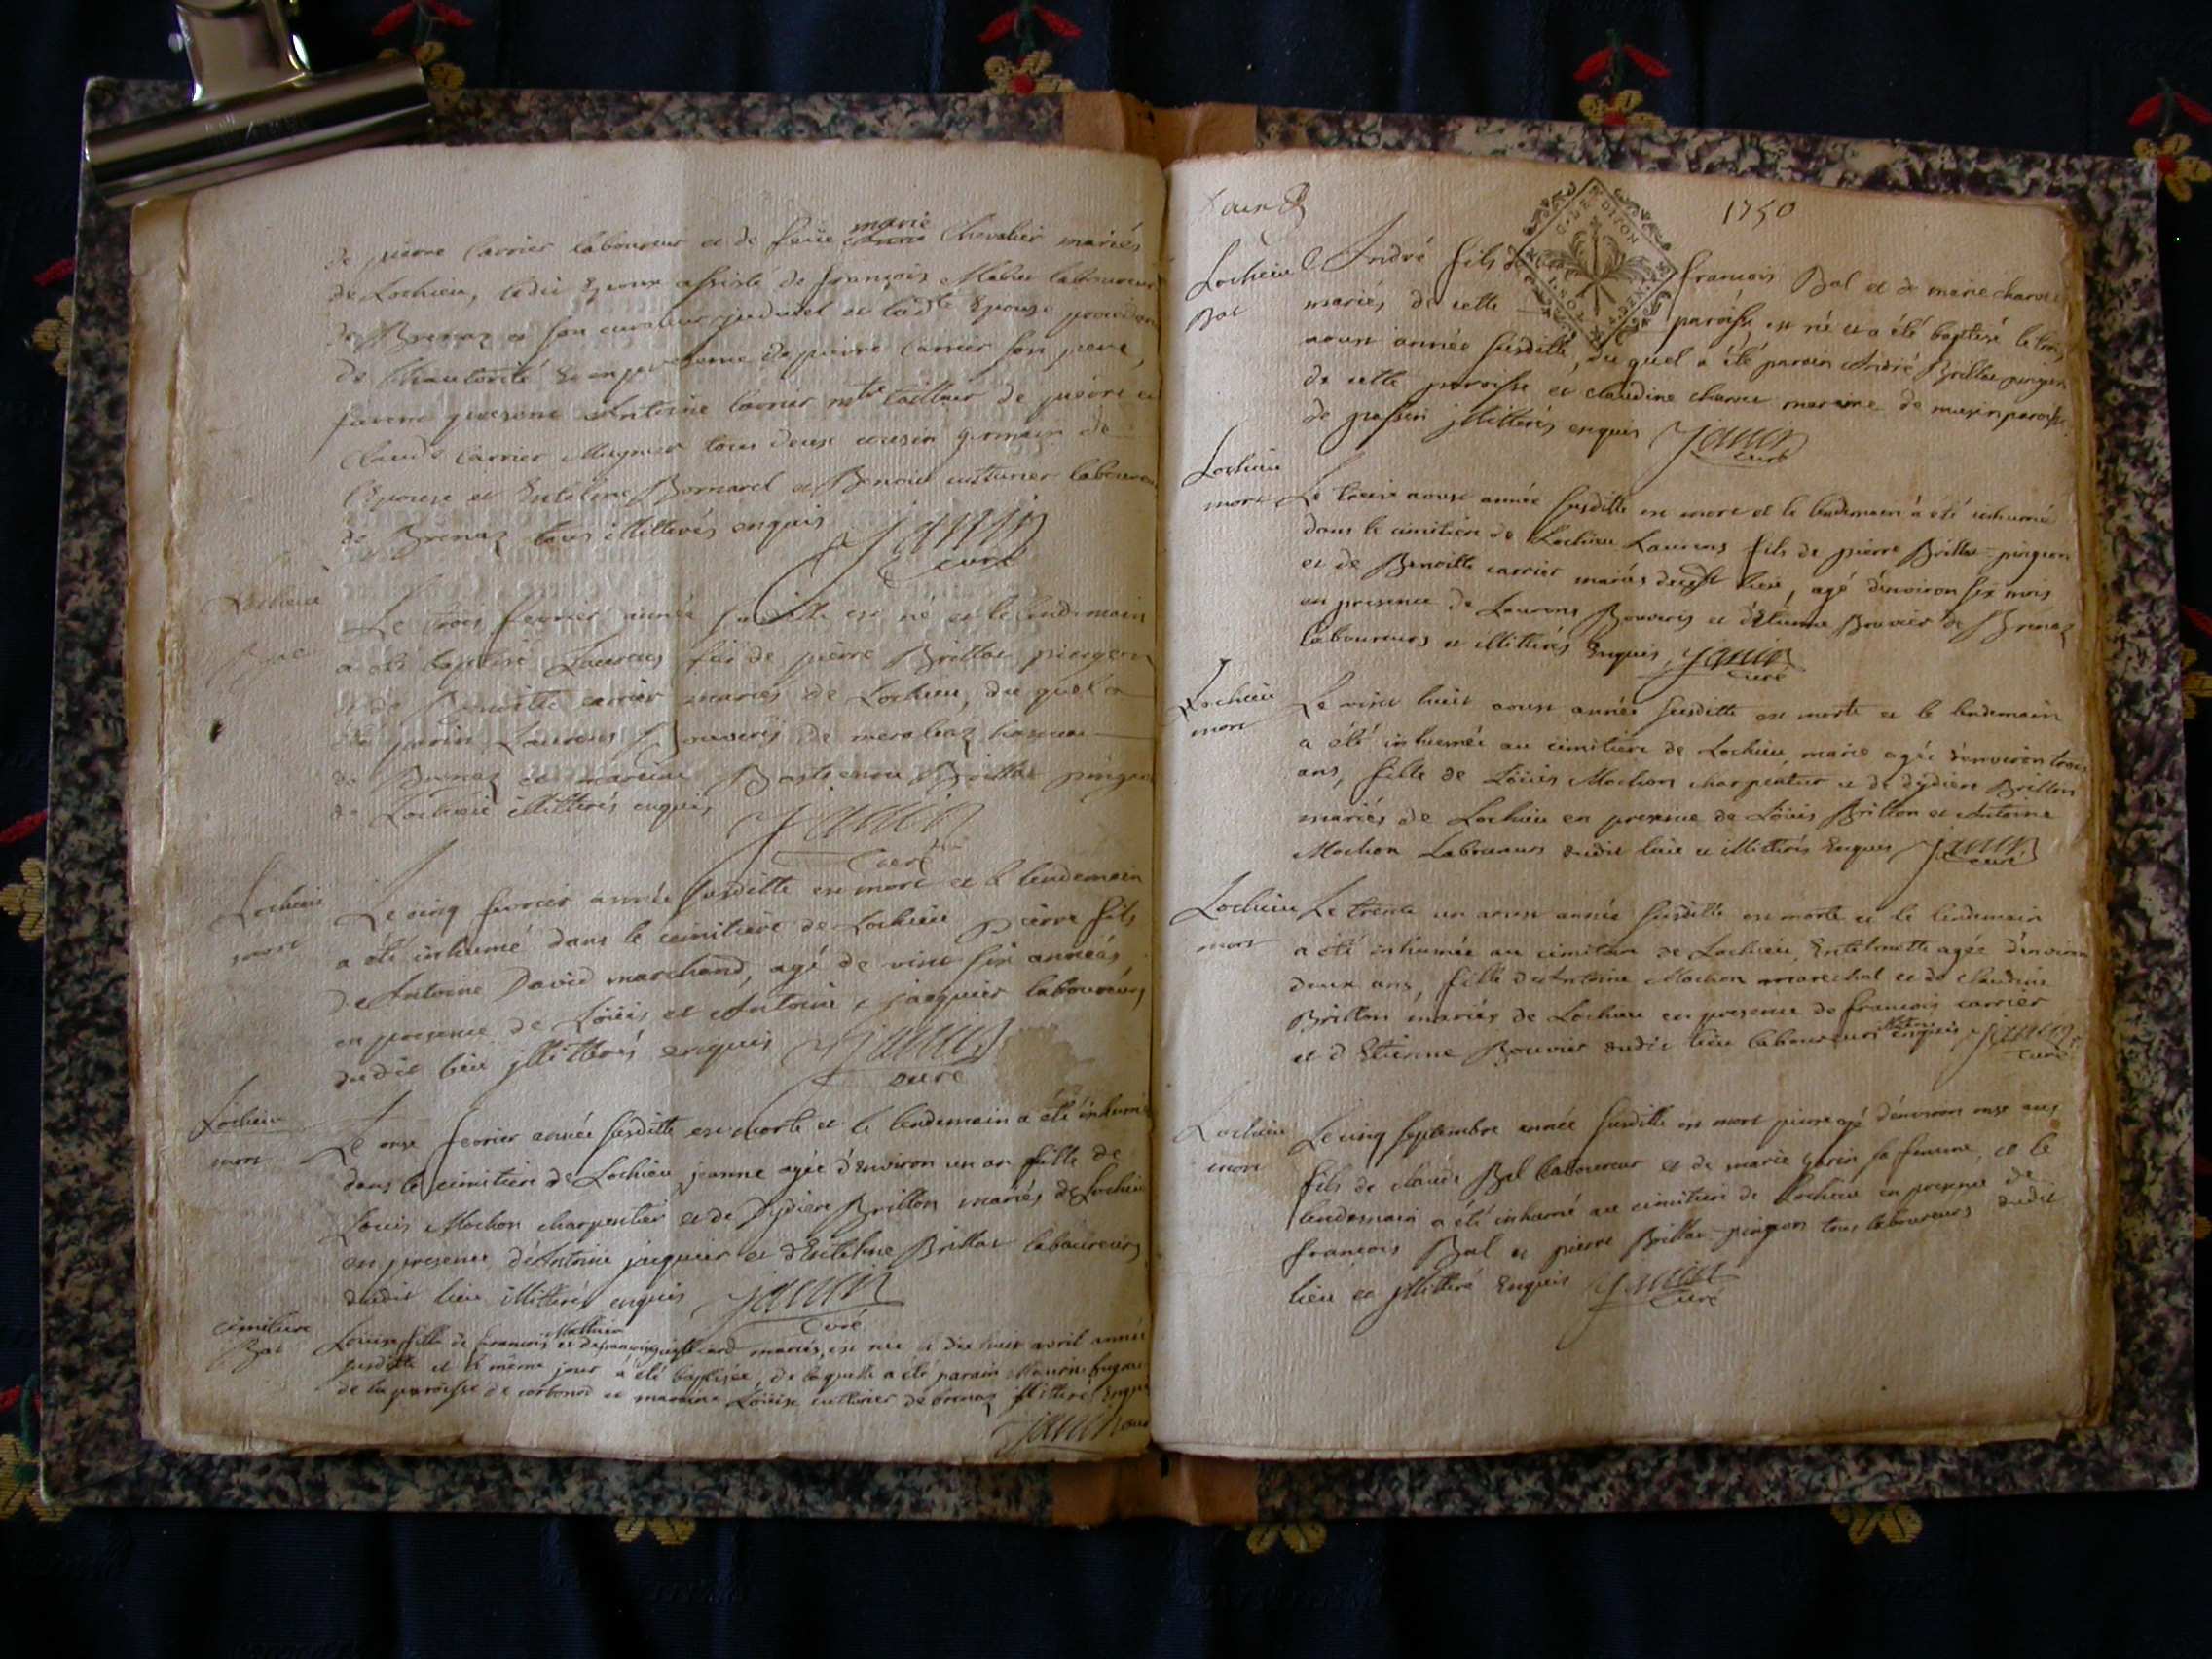 de pierre Carrier laboureur et de feüe marie Chevalier mariés
de Lochieu, ledit Epoux assisté de françois Mathieu laboureur
de Brenaz et son curateur judiciel et ladte Epouse procedant
de l'hautorité de pierre Carrier son pere,
furent presens Antoine Carrier mtre tailleur de pierre et
Claude Carrier Mugnier tous deux cousin germain de
l'Epouse et Entelme Bornarel et Benoit cutturier laboureurs
de Brenaz tous illitterés enquis Janin
curé
Lochieu
Bat
Le trois fevrier année susditte est né et le lendemain
a été baptisé Laurens fils de pierre Brillat pingeon
et de Benoitte carrier mariés de Lochieu, du quel a
été parin Laurens Bouveris de hameau
de Brenaz et mareine Brillat pingeon
de Lochieu illitterés enquis Janin
curé
Lochieu
mort
Le cinq fevrier année susditte est mort et le lendemain
a été inhumé dans le cimitiere de Lochieu Pierre fils
de Antoine David marchand, agé de vint six années
en presence de Löüis et Antoine jacquier laboureurs
dudit lieu jllitterés enquis Janin
curé
Lochieu
mort
Le onse fevrier année susditte est morte et le lendemain a été inhumé
dans le cimitiere de Lochieu jeanne agée d'environ un an fille de
Louis Mochon charpentier et de Dydiere Brillon mariés de Lochieu
en presence d'Antoine jacquier et d'Entelme Brillat laboureurs
dudit lieu illitterés enquis Janin
curé
cimiliere
Bat
Mathieu
Louise fille de francois et de mariés, est née le dix huit avril année
susditte et le même jour a été baptisée, de laquelle a été parain
de la paroisse de corbonod et maraine Löüise cutturier de brenaz illitterés enquis
Janin curé
1750
Lochieu
Bat
André fils de francois Bal et de marie charvet
mariés de cette paroisse, est né et a été baptisé le trois
aoust année susditte, du quel a été parain André Brillat pingeon
de cette paroisse et claudine charvet maraine de musin paroisse
de passin jllitterés enquis Janin
curé
G. DE DIJON
Lochieu
mort
Le treise aoust année susditte est mort et le lendemain a été inhumé
dans le cimitiere de Lochieu Laurens fils de pierre Brillat-pingeon
et de Benoitte carrier mariés dudit lieu, agé d'environ six mois
en presence de Laurens Bouveris et d'Etienne Bouvier de Brenaz
laboureurs et illitterés Enquis Janin
curé
Lochieu
mort
Le vint huit aoust année susditte est morte et le lendemain
a été inhumée au cimitiere de Lochieu, marie agée d'environ trois
ans, fille de Löüis Mochon charpentier et de dydiere Brillon
mariés de Lochieu en presence de Löüis Brillon et Antoine
Mochon Laboureurs dudit lieu et illitterés Enquis Janin
curé
Lochieu
mort
Le trente un aoust année susditte est morte et le lendemain
a été inhumée au cimitiere de Lochieu, Entelmette agée d'environ
deux ans, fille d'Antoine Mochon marechal et de claudine
Brillon mariés de Lochieu en presence de francois carrier
et d'Etienne Bouvier dudit lieu laboureurs illitterés enquis Janin
curé
Lochieu
mort
Le cinq septembre année susditte est mort pierre agé d'environ onse ans
fils de claude Bal laboureur et de marie garin sa femme, et le
lendemain a été inhumé au cimitiere de Lochieu en presence de
francois Bal et pierre Brillat-pingeon tous laboureurs dudit
lieu et jllitteré Enquis Janin
curé